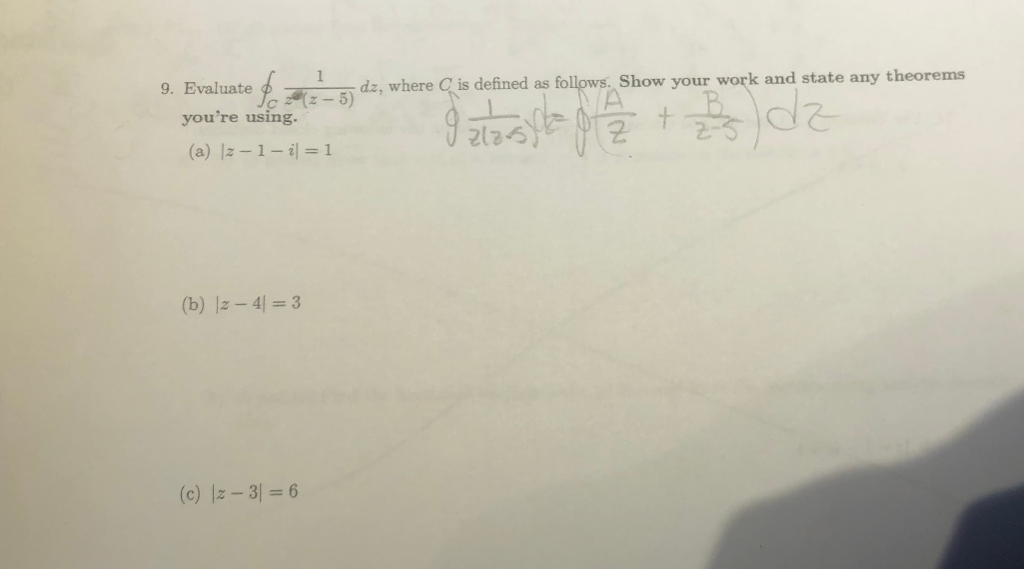 9. Evaluate ∮_C 1/(z(z − 5)) dz, where C is defined as follows. Show your work and state any theorems
you're using.
∮ 1/(z(z-5)) dz = ∮ (A/z + B/(z-5)) dz
(a) |z − 1 − i| = 1
(b) |z − 4| = 3
(c) |z − 3| = 6